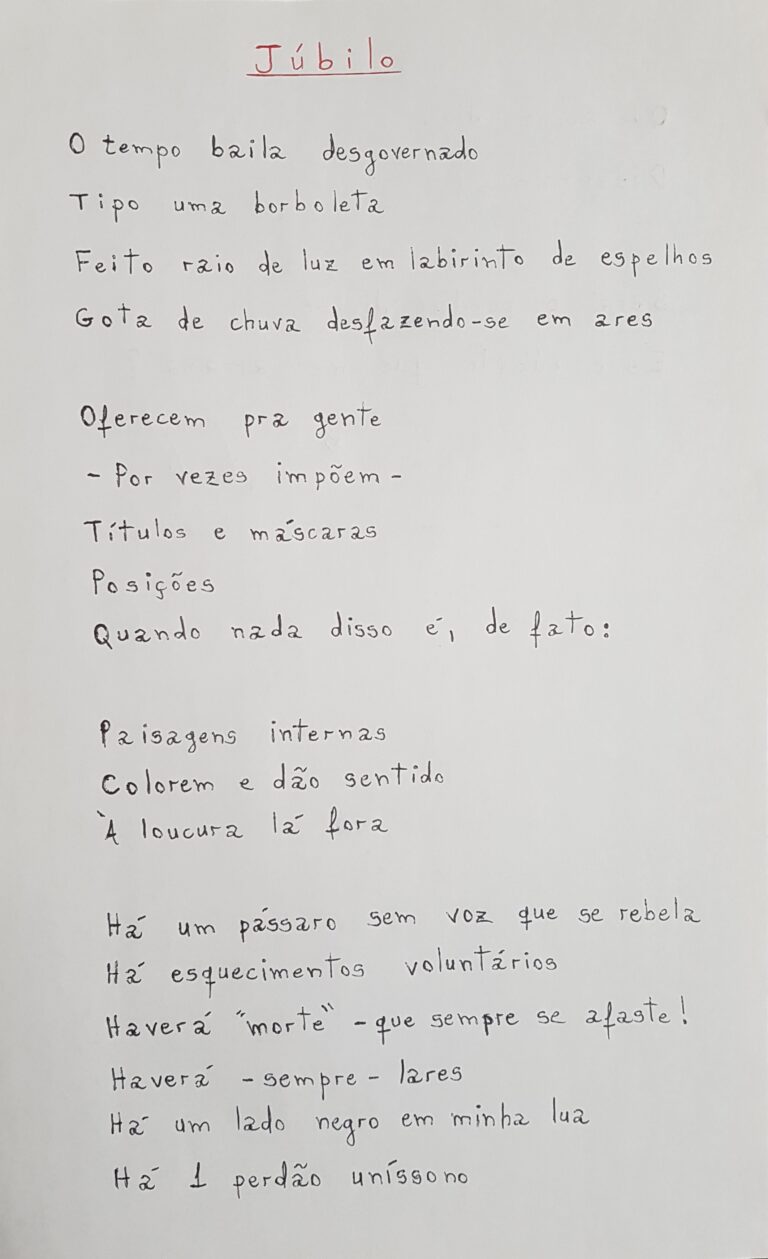 Júbilo
O tempo baila desgovernado
Tipo uma borboleta
Feito raio de luz em labirinto de espelhos
Gota de chuva desfazendo-se em ares
Oferecem pra gente
- Por vezes impõem -
Títulos e máscaras
Posições
Quando nada disso é, de fato:
Paisagens internas
Colorem e dão sentido
À loucura lá fora
Há um pássaro sem voz que se rebela
Há esquecimentos voluntários
Haverá "morte" - que sempre se afaste!
Haverá - sempre - lares
Há um lado negro em minha lua
Há 1 perdão uníssono